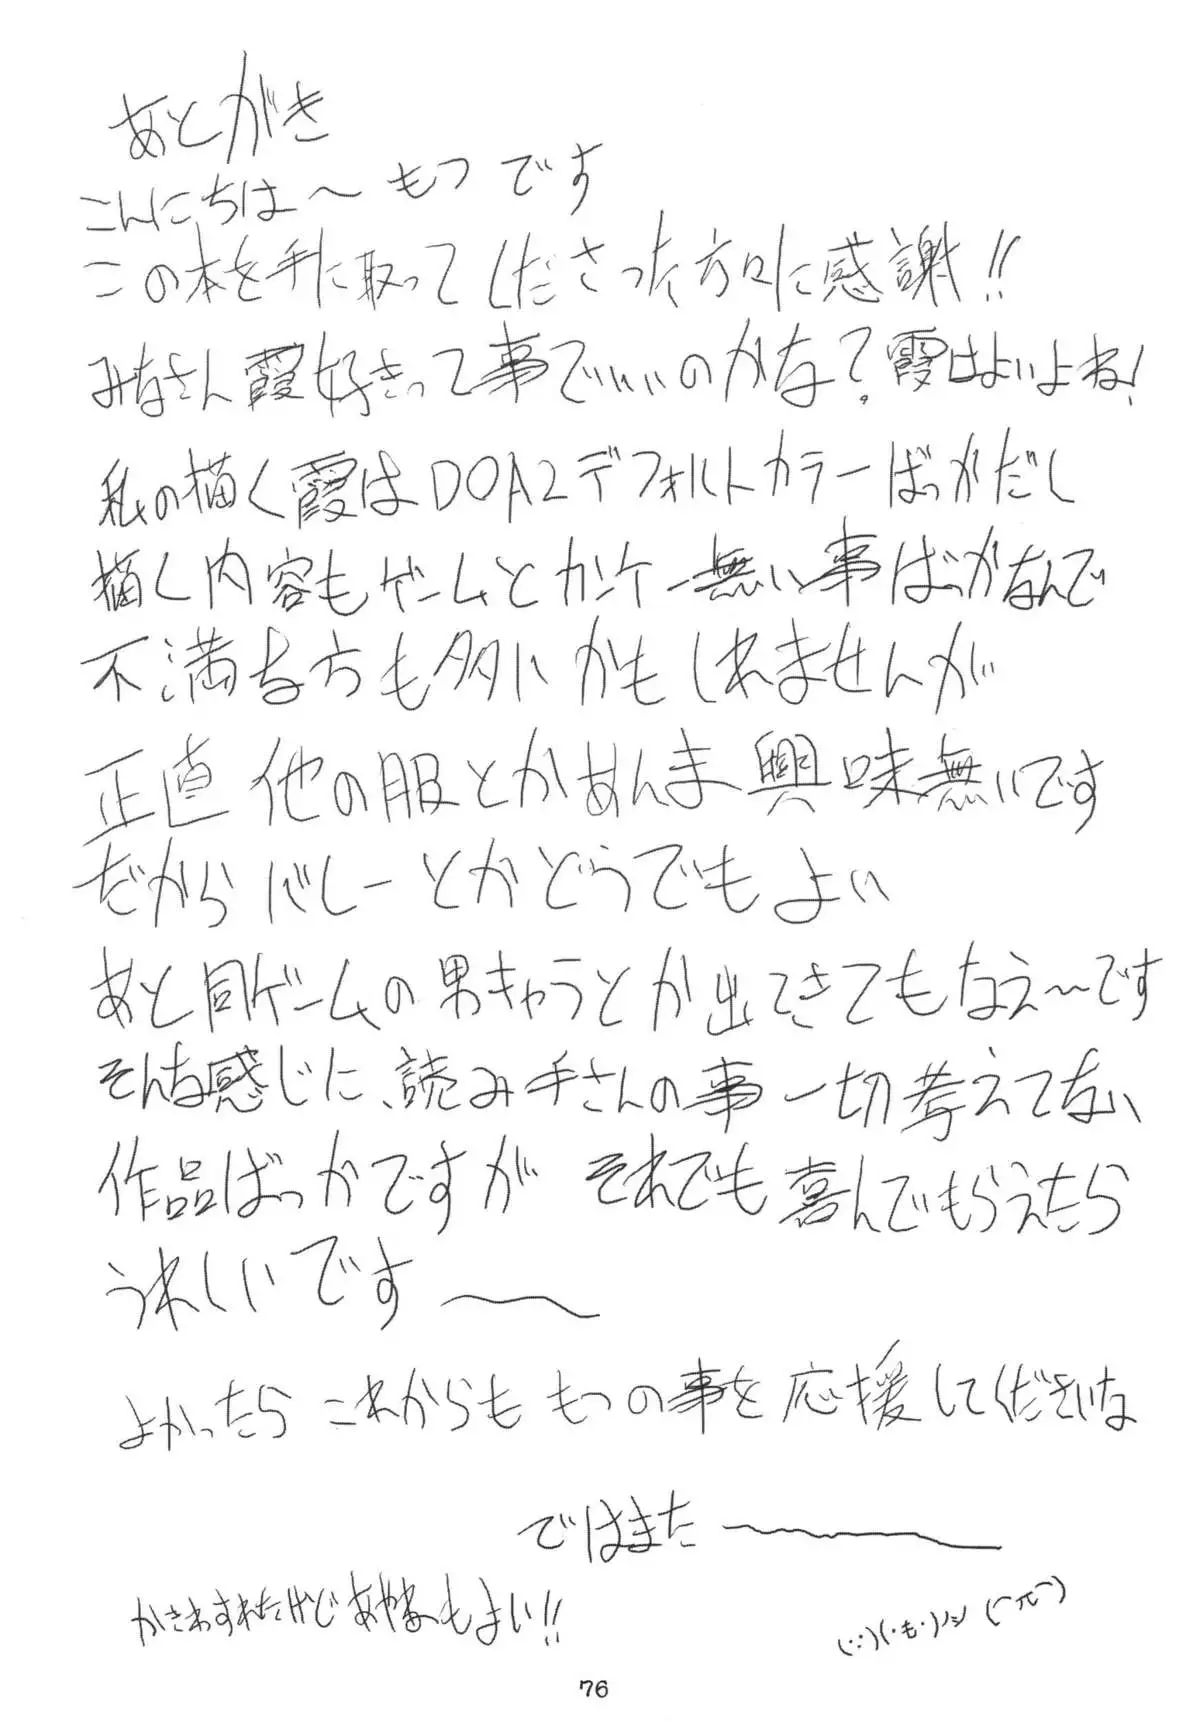 あとがき
こんにちは〜 もつ です
この本を手に取って くださった方々に感謝!!
みなさん霞好きって事でいいのかな?霞はよいよね!
私の描く霞はDOA2デフォルトカラーばっかだし
描く内容もゲームとカンケー無い事ばっかなんで
不満な方も多いかもしれませんが
正直 他の服とかあんま興味無いです
だから バレーとかどうでもよい
あと同ゲームの男キャラとか出てきてもなえ〜です
そんな感じに、読み手さんの事一切考えてない
作品ばっかですが それでも喜んでもらえたら
うれしいです〜
よかったら これからも もつの事を応援してくださいな
ではまた〜
かきわすれたけどあやねもよい!!
(··)(·も·)ノシ
76